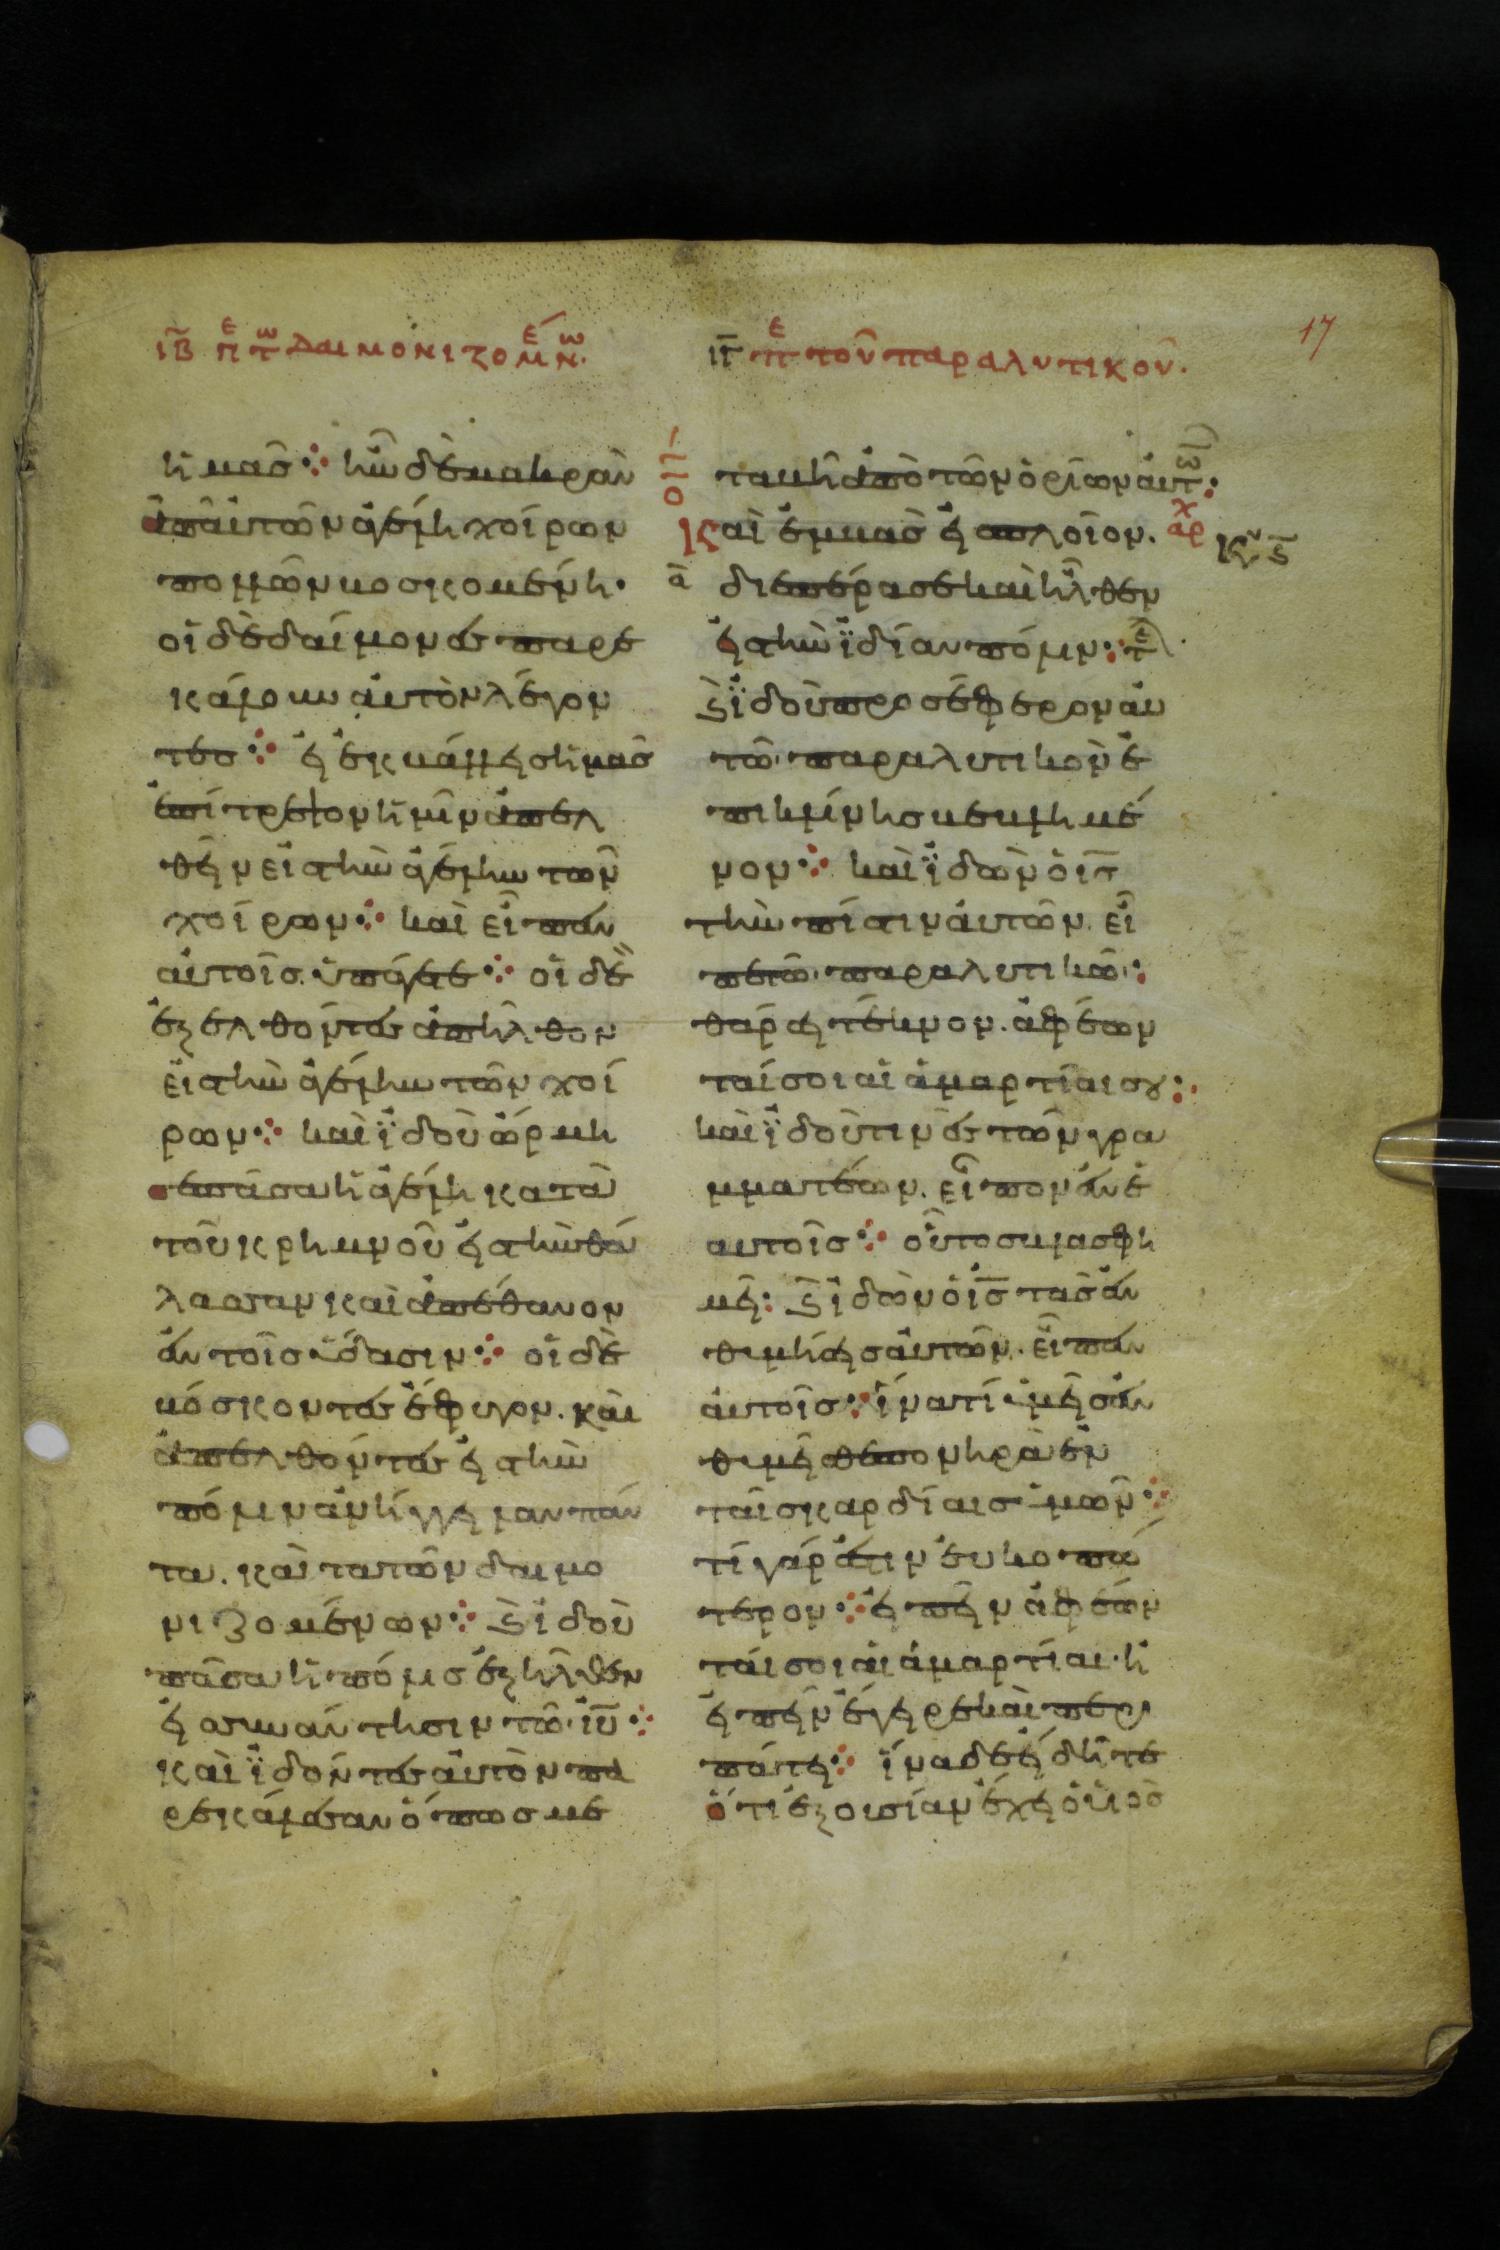 17
ιβ πε τω δαιμονιζομένων.
ιγ πε τοῦ παραλυτικοῦ.
ἡμᾶσ ⁘ ἦν δὲ μακρὰν
ἀπ᾽ αὐτῶν ἀγέλη χοίρων
πολλῶν βοσκομένη·
οἱ δὲ δαίμονες παρε
κάλουν αὐτὸν λέγον
τεσ ⁘ εἰ ἐκβάλλεισ ἡμᾶσ
ἐπίτρεψον ἡμῖν ἀπελ
θεῖν εἰς τὴν ἀγέλην τῶν
χοίρων ⁘ καὶ εἶπεν
αὐτοῖσ. ὑπάγετε ⁘ οἱ δὲ
ἐξελθόντες ἀπῆλθον
εἰς τὴν ἀγέλην τῶν χοί
ρων ⁘ καὶ ϊδοὺ ὥρμη
σε πᾶσα ἡ ἀγέλη κατὰ
τοῦ κρημνοῦ εἰς τὴν θά
λασσαν καὶ ἀπέθανον
ἐν τοῖσ ὕδασιν ⁘ οἱ δὲ
βόσκοντες ἔφυγον. καὶ
ἀπελθόντες εἰς τὴν
πόλιν ἀνήγγειλαν πάν
τα. καὶ τὰ τῶν δαιμο
νιζομένων ⁘ ϗ ἰδοὺ
πᾶσα ἡ πόλισ ἐξῆλθεν
εἰς συνάντησιν τῶ ιυ ⁘
καὶ ϊδόντες αὐτὸν πα
ρεκάλεσαν ὅπωσ με
ταβῆ ἀπὸ τῶν ὁρίων αὐτῶ:
Καὶ ἐμβὰσ εἰς πλοῖον. αρχ κυ ϛ
α διεπέρασε καὶ ἦλθεν
εἰς τὴν ϊδίαν πόλιν ⁘ τε
ϗ ϊδοὺ προσέφερον αὐ
τῶ παραλυτικὸν ἐ
πὶ κλίνησ βεβλημέ
νον ⁘ καὶ ϊδὼν ὁ ισ
τὴν πίστιν αὐτῶν. εἶ
πε τῶ παραλυτικῶ:
θάρσει τέκνον. ἀφέων
ταί σοι αἱ ἁμαρτίαι σου:
καὶ ϊδοὺ τινὲς τῶν γρα
μματέων. εἶπον ἐν ἑ
αυτοῖσ ⁘ οὗτοσ βλασφη
μεῖ: ϗ ἰδὼν ὁ ισ τὰσ ἐν
θυμήσεισ αὐτῶν. εἶπεν
αὐτοῖσ ⁘ ἵνα τί ὑμεῖσ ἐν
θυμεῖσθε πονηρὰ ἐν
ταῖσ καρδίαισ ὑμῶν ⁘
τί γάρ ἐστιν εὐκοπώ
τερον ⁘ εἰπεῖν ἀφέων
ταί σοι αἱ ἁμαρτίαι· ἢ
εἰπεῖν ἔγειρε καὶ περι
πάτει ⁘ ἵνα δὲ εἰδῆτε
ὅτι ἐξουσίαν ἔχει ὁ υἱὸσ